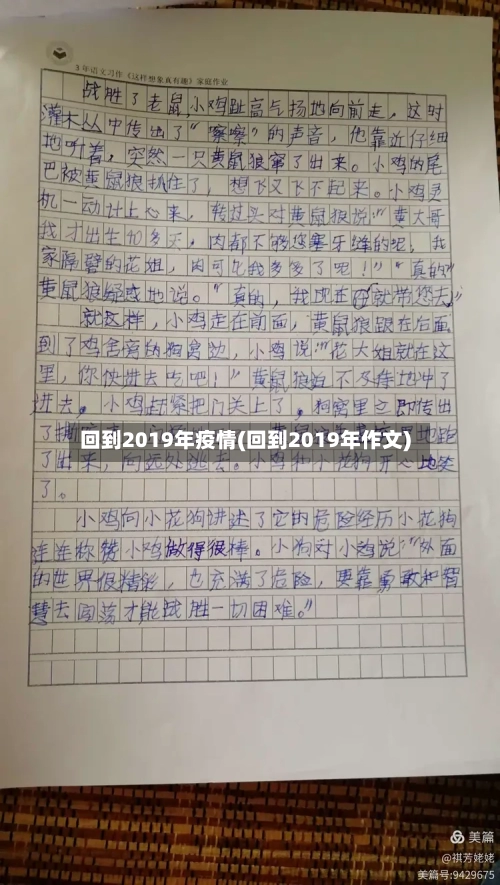 3年语文习作《这样想象真有趣》家庭作业
战胜了老鼠,小鸡趾高气扬地向前走,这时
灌木丛中传出了“嚓嚓”的声音,他靠近仔细
地听着,突然一只黄鼠狼窜了出来。小鸡的尾
巴被黄鼠狼抓住了,想飞又飞不起来。小鸡灵
机一动计上心来,转过头对黄鼠狼说:“黄大哥
我才出生40多天,肉都不够您塞牙缝的呢,我
家隔壁的花姐,肉可比我多多了呢!”“真的”
黄鼠狼疑惑地说。“真的,我现在就带您去”
就这样,小鸡走在前面,黄鼠狼跟在后面
到了鸡舍旁的狗窝边,小鸡说:“花大姐就在这
里,你快进去吃吧!”黄鼠狼迫不及待地冲了
进去,小鸡赶紧把门关上了,狗窝里立即传出
了
地距
回到2019年疫情(回到2019年作文)
了出来,向远处逃去。小鸡和小花狗开心地笑
了。
小鸡向小花狗讲述了它的危险经历小花狗
连连称赞小鸡做得很棒。小狗对小鸡说:“外面
的世界很精彩,也充满了危险,要靠勇敢和智
慧去闯荡才能战胜一切困难。”
美篇
@祺芳姥姥
美篇号:9429675